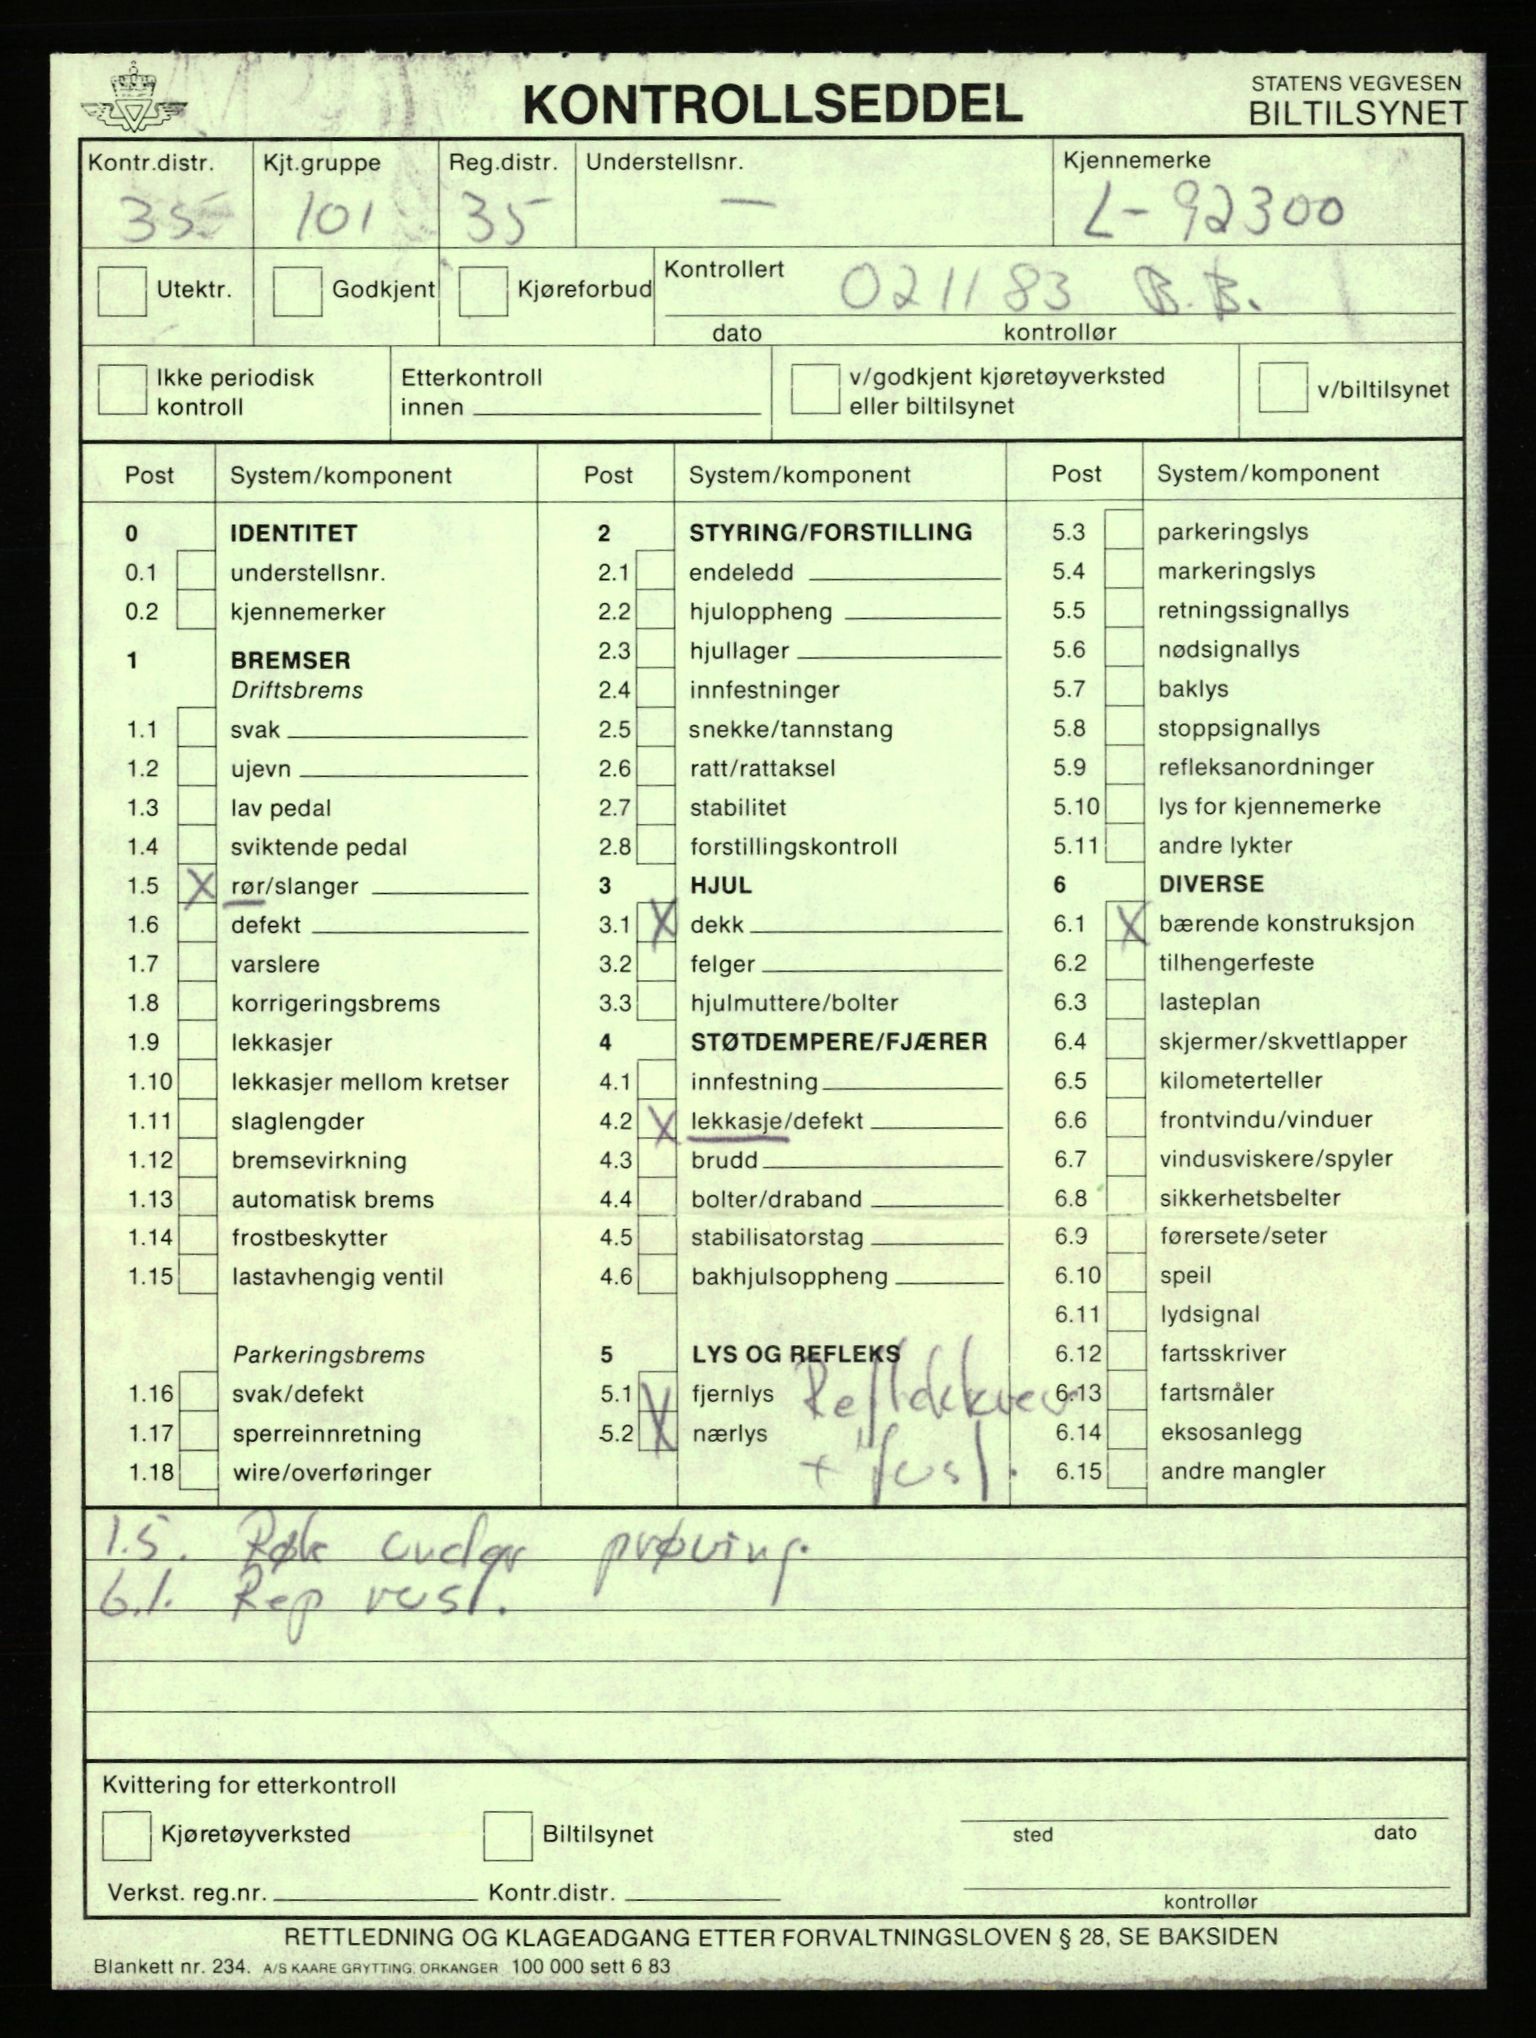 KONTROLLSEDDEL
STATENS VEGVESEN
BILTILSYNET
Kontr.distr. Kjt.gruppe Reg.distr. Understellsnr. Kjennemerke
35 101 35 — L-92300
Utektr. Godkjent Kjøreforbud Kontrollert 021183 B.B.
dato kontrollør
Ikke periodisk kontroll
Etterkontroll innen
v/godkjent kjøretøyverksted eller biltilsynet
v/biltilsynet
Post System/komponent Post System/komponent Post System/komponent
0 IDENTITET
0.1 understellsnr.
0.2 kjennemerker
1 BREMSER
Driftsbrems
1.1 svak
1.2 ujevn
1.3 lav pedal
1.4 sviktende pedal
1.5 X rør/slanger
1.6 defekt
1.7 varslere
1.8 korrigeringsbrems
1.9 lekkasjer
1.10 lekkasjer mellom kretser
1.11 slaglengder
1.12 bremsevirkning
1.13 automatisk brems
1.14 frostbeskytter
1.15 lastavhengig ventil
Parkeringsbrems
1.16 svak/defekt
1.17 sperreinnretning
1.18 wire/overføringer
2 STYRING/FORSTILLING
2.1 endeledd
2.2 hjuloppheng
2.3 hjullager
2.4 innfestninger
2.5 snekke/tannstang
2.6 ratt/rattaksel
2.7 stabilitet
2.8 forstillingskontroll
3 HJUL
3.1 X dekk
3.2 felger
3.3 hjulmuttere/bolter
4 STØTDEMPERE/FJÆRER
4.1 innfestning
4.2 X lekkasje/defekt
4.3 brudd
4.4 bolter/draband
4.5 stabilisatorstag
4.6 bakhjulsoppheng
5 LYS OG REFLEKS
5.1 X fjernlys
5.2 X nærlys
5.3 parkeringslys
5.4 markeringslys
5.5 retningssignallys
5.6 nødsignallys
5.7 baklys
5.8 stoppsignallys
5.9 refleksanordninger
5.10 lys for kjennemerke
5.11 andre lykter
6 DIVERSE
6.1 X bærende konstruksjon
6.2 tilhengerfeste
6.3 lasteplan
6.4 skjermer/skvettlapper
6.5 kilometerteller
6.6 frontvindu/vinduer
6.7 vindusviskere/spyler
6.8 sikkerhetsbelter
6.9 førersete/seter
6.10 speil
6.11 lydsignal
6.12 fartsskriver
6.13 fartsmåler
6.14 eksosanlegg
6.15 andre mangler
1.5. Røk under prøving.
6.1. Rep rust.
Kvittering for etterkontroll
Kjøretøyverksted Biltilsynet
sted dato
Verkst. reg.nr. Kontr.distr.
kontrollør
RETTLEDNING OG KLAGEADGANG ETTER FORVALTNINGSLOVEN § 28, SE BAKSIDEN
Blankett nr. 234. A/S KAARE GRYTTING, ORKANGER 100 000 sett 6 83